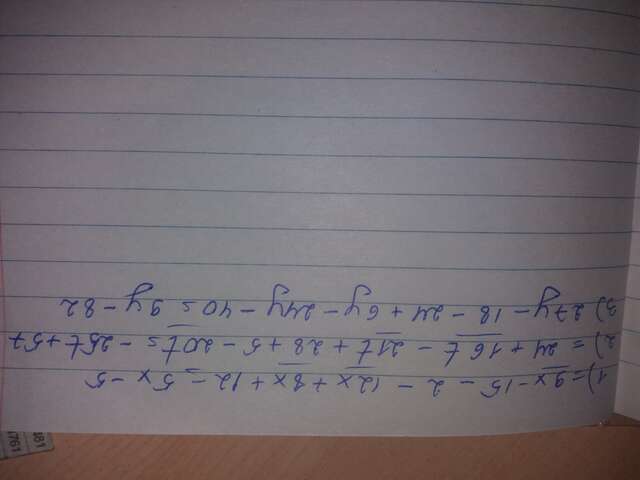 1) = 9x - 15 - 2 - 12x + 8x + 12 - 5x - 5
2) = 24 + 16t - 21t + 28 + 5 - 20t = - 25t + 57
3) 27y - 18 - 24 + 6y - 24y - 40 = 9y - 82
4761